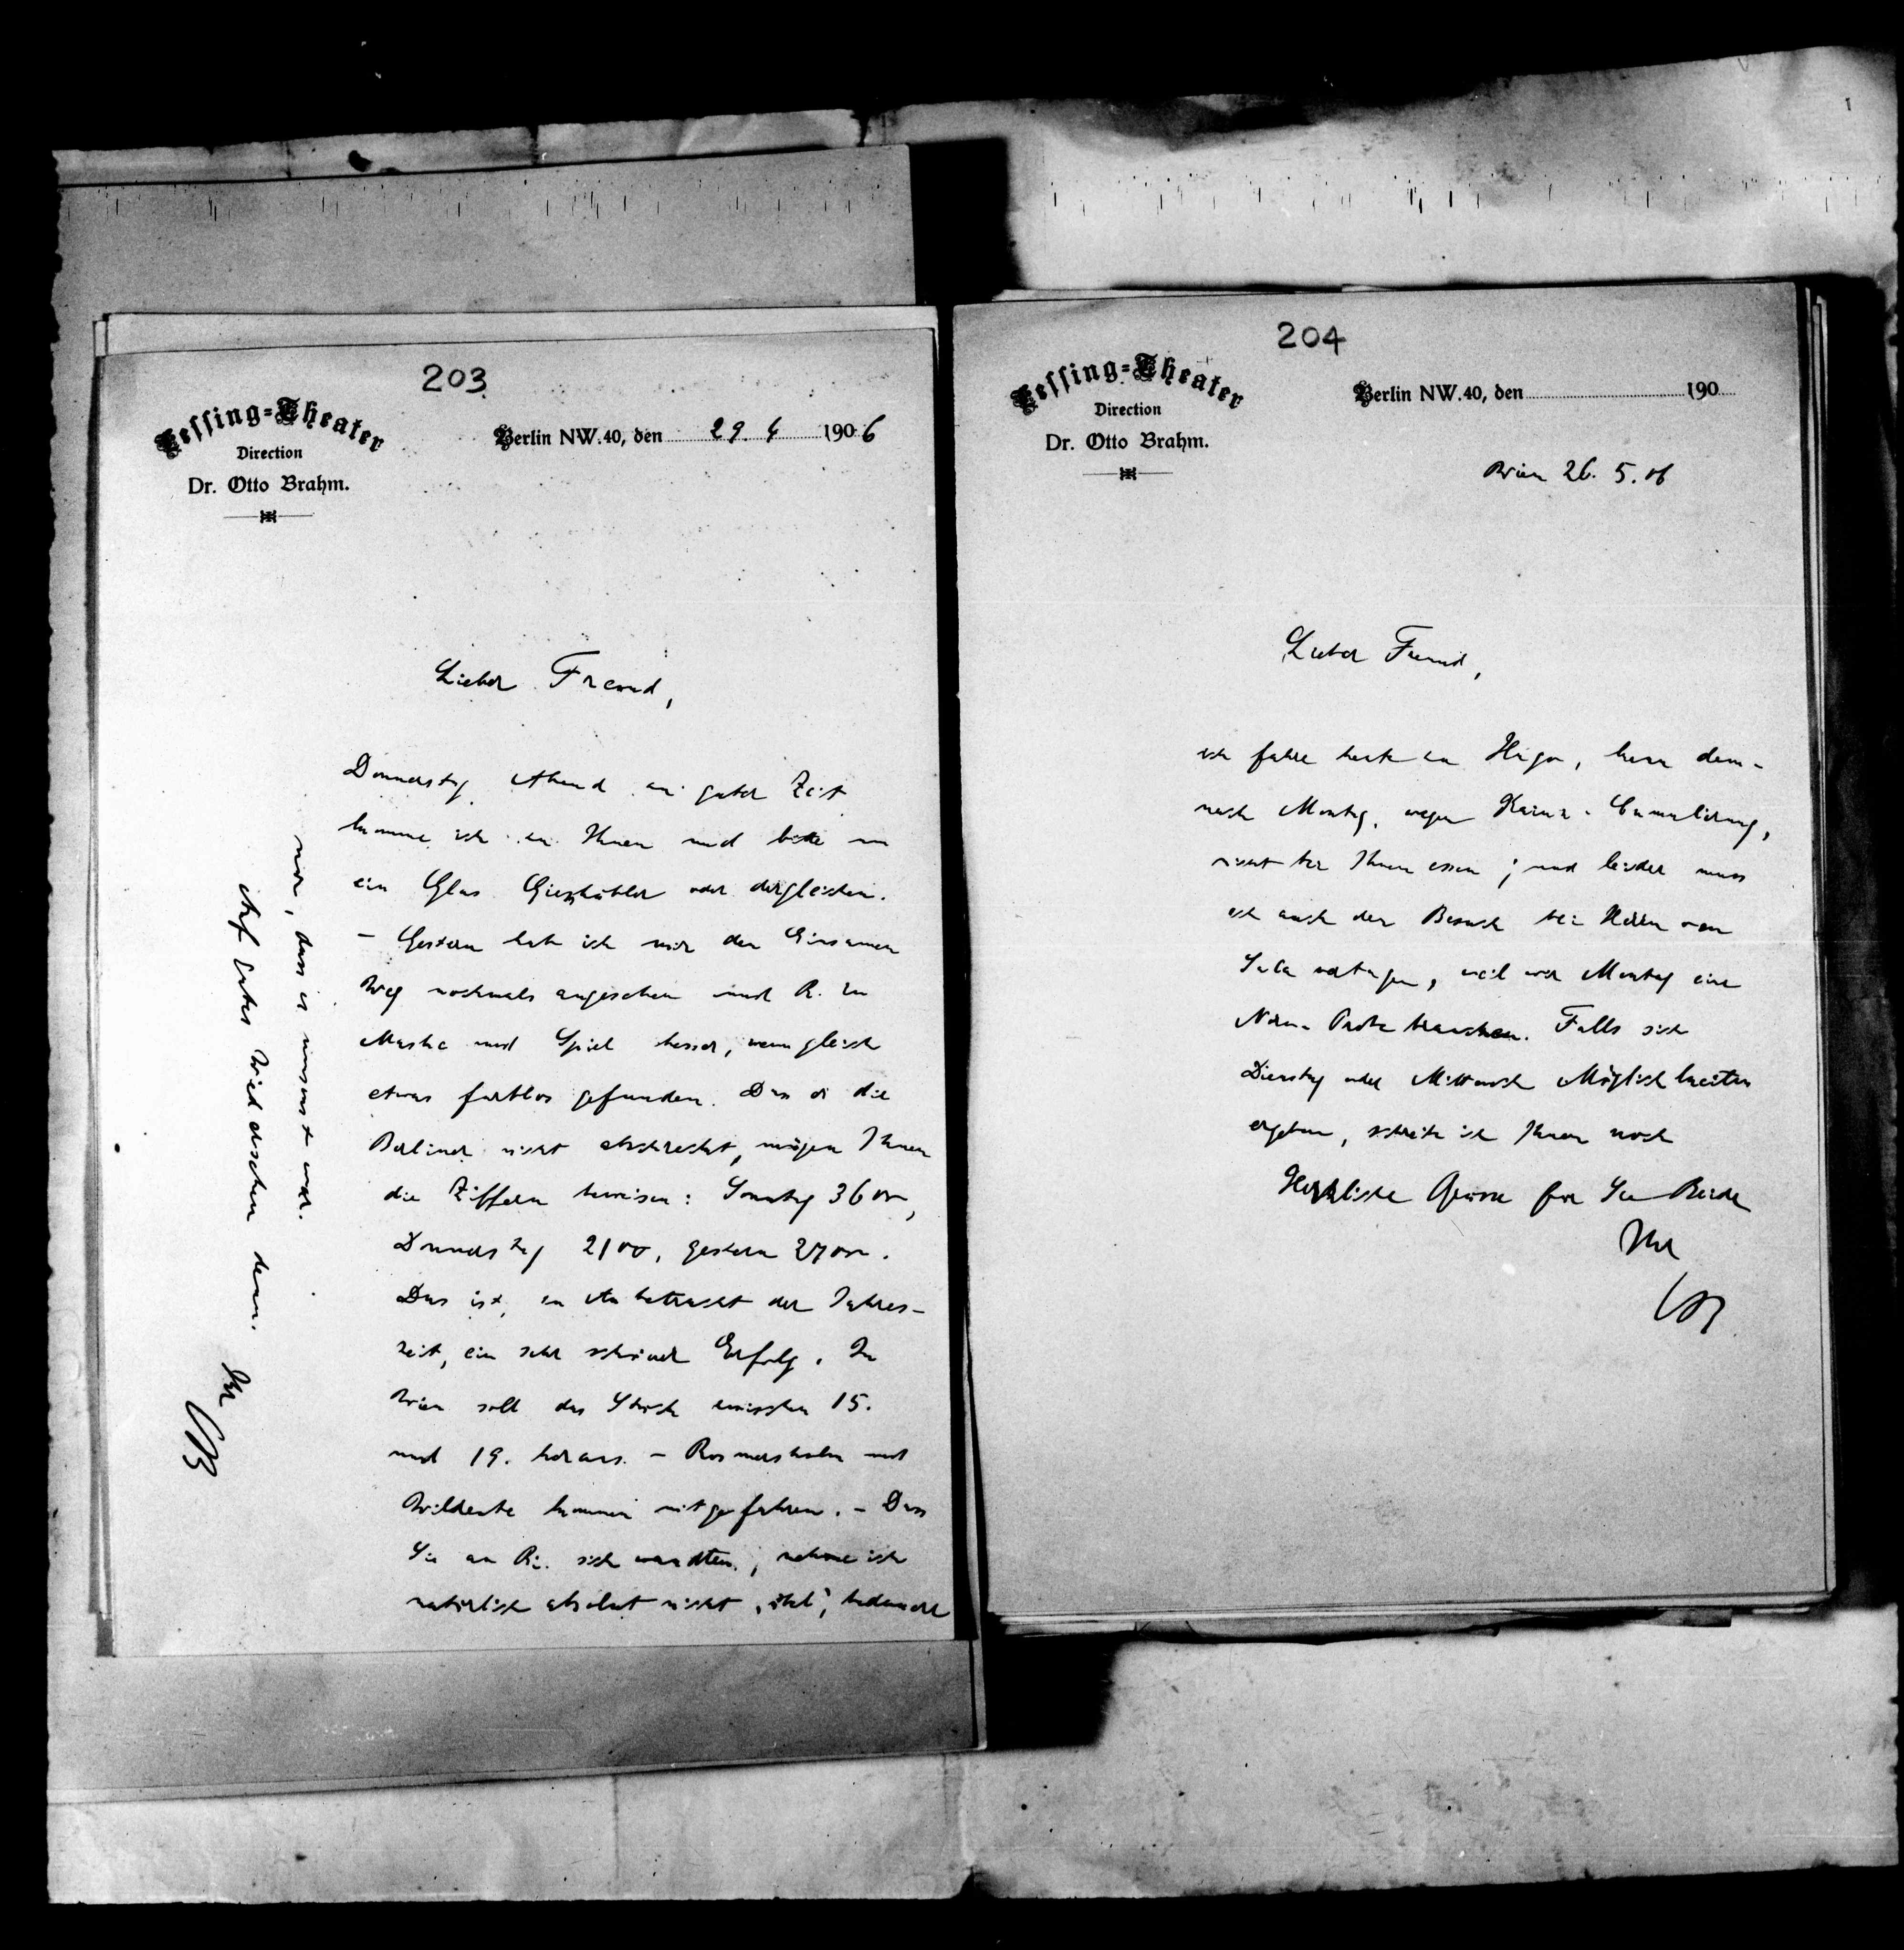 203
Lessing-Theater
Direction
Dr. Otto Brahm.
Berlin NW.40, den 29. 4 1906
Lieber Freund,
Donnerstag Abend zu guter Zeit
komme ich zu Ihnen und bitte um
ein Glas Gieszhübler oder dergleichen.
– Gestern hab ich mir den Einsamen
Weg nochmals angesehen und R. in
Maske und Spiel besser, wenn gleich
etwas farblos gefunden. Dass er die
Berliner nicht abschreckt, mögen Ihnen
die Ziffern beweisen: Sonntag 3600,
Donnerstag 2100, gestern 2700.
Das ist, in Anbetracht der Jahres-
zeit, ein sehr schöner Erfolg. In
Wien soll das Stück zwischen 15.
und 19. heraus. – Rosmersholm und
Wildente kommen mitgefahren. – Dass
Sie an Ri. sich wandten, nehme ich
natürlich absolut nicht „übel“, bedauere
nur, dass es umsonst war.
Auf gutes Wiedersehen denn.
Ihr
OB
204
Lessing-Theater
Direction
Dr. Otto Brahm.
Berlin NW.40, den 190
Wien 26. 5. 06
Lieber Freund,
ich fahre heute zu Hugo, kann dem-
nach Montag, wegen Kainz-
nicht bei Ihnen essen; und leider muss
ich auch den Besuch bei Herrn von
vertagen, weil wir Montag eine
Nora-Probe brauchen. Falls sich
Dienstag oder Mittwoch Möglichkeiten
ergeben, schreibe ich Ihnen noch
Herzliche Grüsse für Sie Beide
Ihr
OB